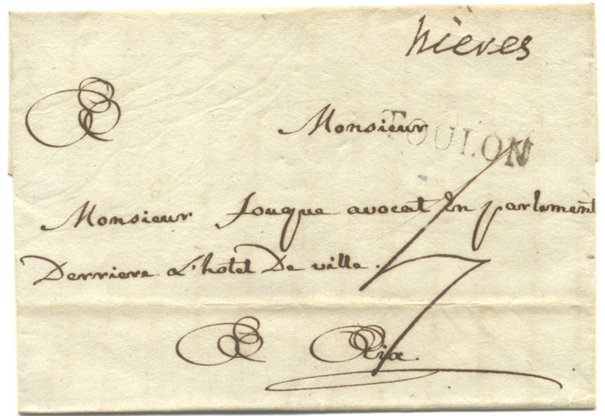 hières
A Monsieur
TOULON
Monsieur fouque avocat En parlement
Derriere L'hotel De ville.
7
A Aix.